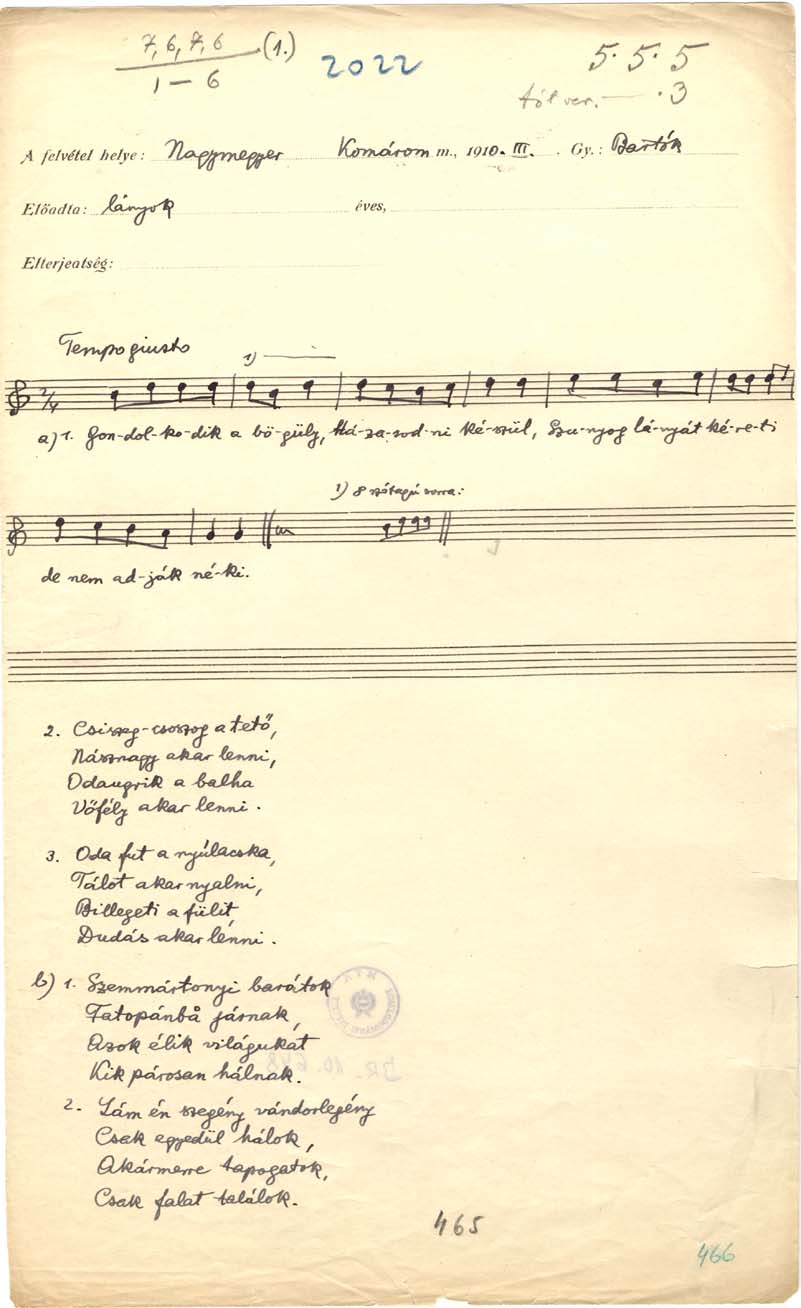 7, 6, 7, 6 (1.)
1 – 6
2022
5. 5. 5
.3
A felvétel helye: Nagymegyer Komárom m., 1910. III. Gy.: Bartók
Előadta: lányok éves,
Elterjedtség:
Tempo giusto
1)
2/4
a) 1. Gon-dol-ko-dik a bö-güly, Há-za-sod-ni ké-szül, Szu-nyog lá-nyát ké-re-ti
1) 8 szótagú sorra:
de nem ad-ják né-ki.
2. Csiszeg-csoszog a tető,
Násznagy akar lenni,
Odaugrik a balha
Vőfély akar lenni.
3. Oda fut a nyúlacska,
Tálot akar nyalni,
Billegeti a fülit,
Dudás akar lenni.
b) 1. Szemmártonyi barátok
Fatopánbå járnak,
Azok élik világukat
Kik párosan hálnak.
2. Lám én szegény vándorlegény
Csak egyedül hálok,
Akármerre tapogatok,
Csak falat találok.
465
466